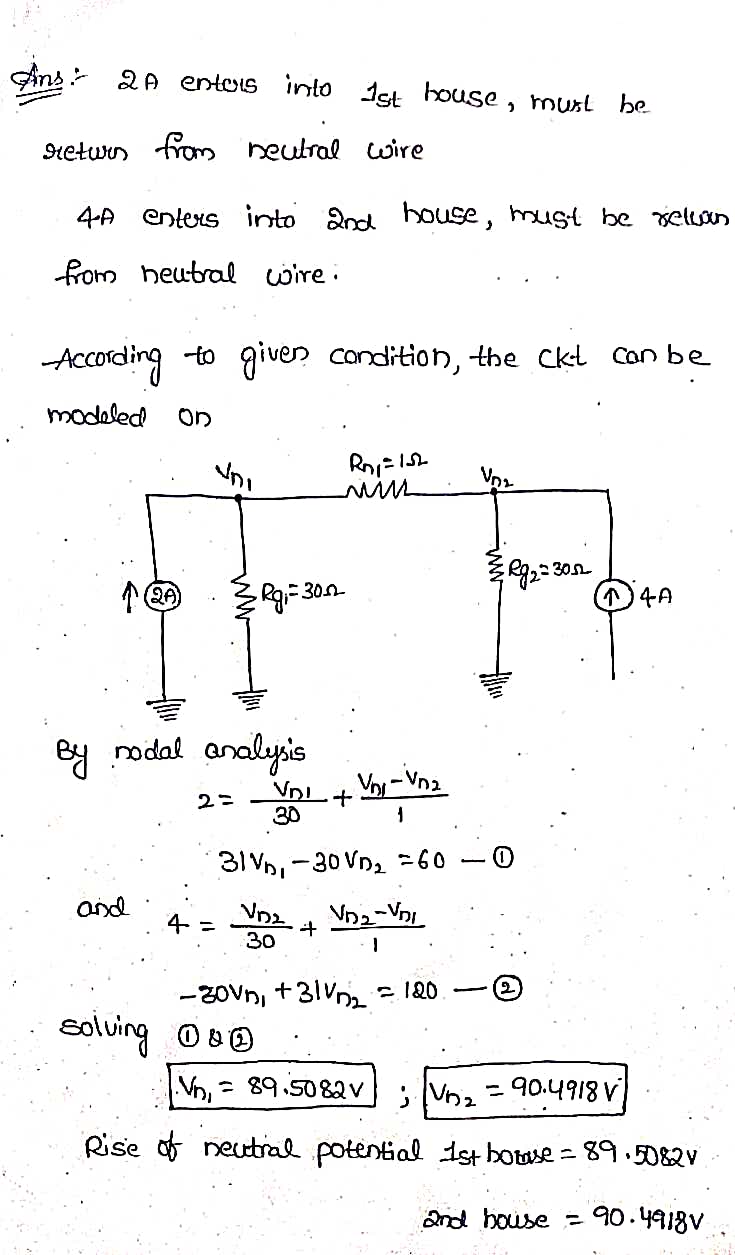 Ans :- 2A enters into 1st house, must be
return from neutral wire
4A enters into 2nd house, must be return
from neutral wire.
According to given condition, the ckt can be
modeled on
Vn1 Rn1 = 1Ω Vn2
↑ 2A Rg1 = 30Ω Rg2 = 30Ω ↑ 4A
By nodal analysis
2 = Vn1/30 + (Vn1 - Vn2)/1
31Vn1 - 30Vn2 = 60 — ①
and 4 = Vn2/30 + (Vn2 - Vn1)/1
-30Vn1 + 31Vn2 = 120 — ②
solving ① & ②
Vn1 = 89.5082V ; Vn2 = 90.4918V
Rise of neutral potential 1st house = 89.5082V
2nd house = 90.4918V